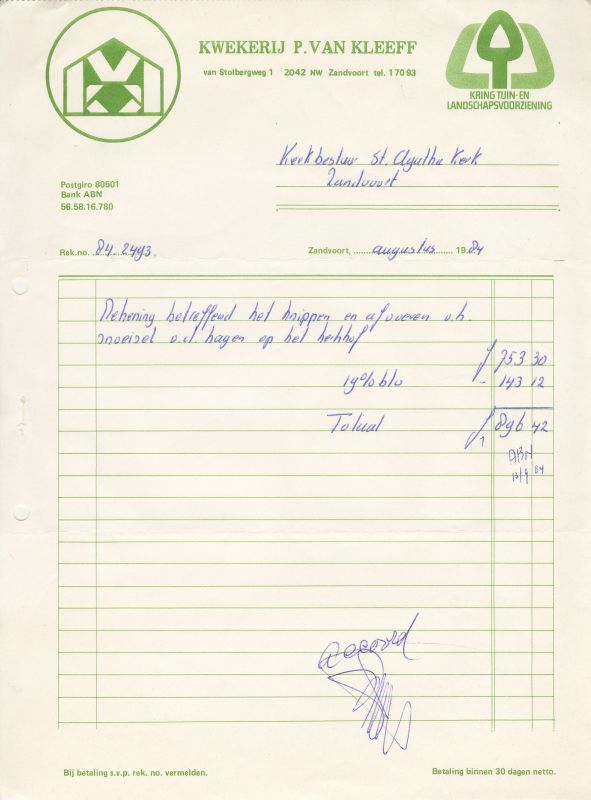 KWEKERIJ P. VAN KLEEFF
van Stolbergweg 1 2042 NW Zandvoort tel. 17093
KRING TUIN- EN
LANDSCHAPSVOORZIENING
Kerkbestuur St. Agatha Kerk
Zandvoort
Postgiro 80501
Bank ABN
56.58.16.780
Rek.no. 84.2493.
Zandvoort, augustus 1984
Rekening betreffend het knippen en afvoeren v.h.
snoeisel v.d. hagen op het kerkhof
ƒ 753 30
19% btw - 143 12
Totaal ƒ 896 42
ABN
13/9 84
accoord
Bij betaling s.v.p. rek. no. vermelden.
Betaling binnen 30 dagen netto.